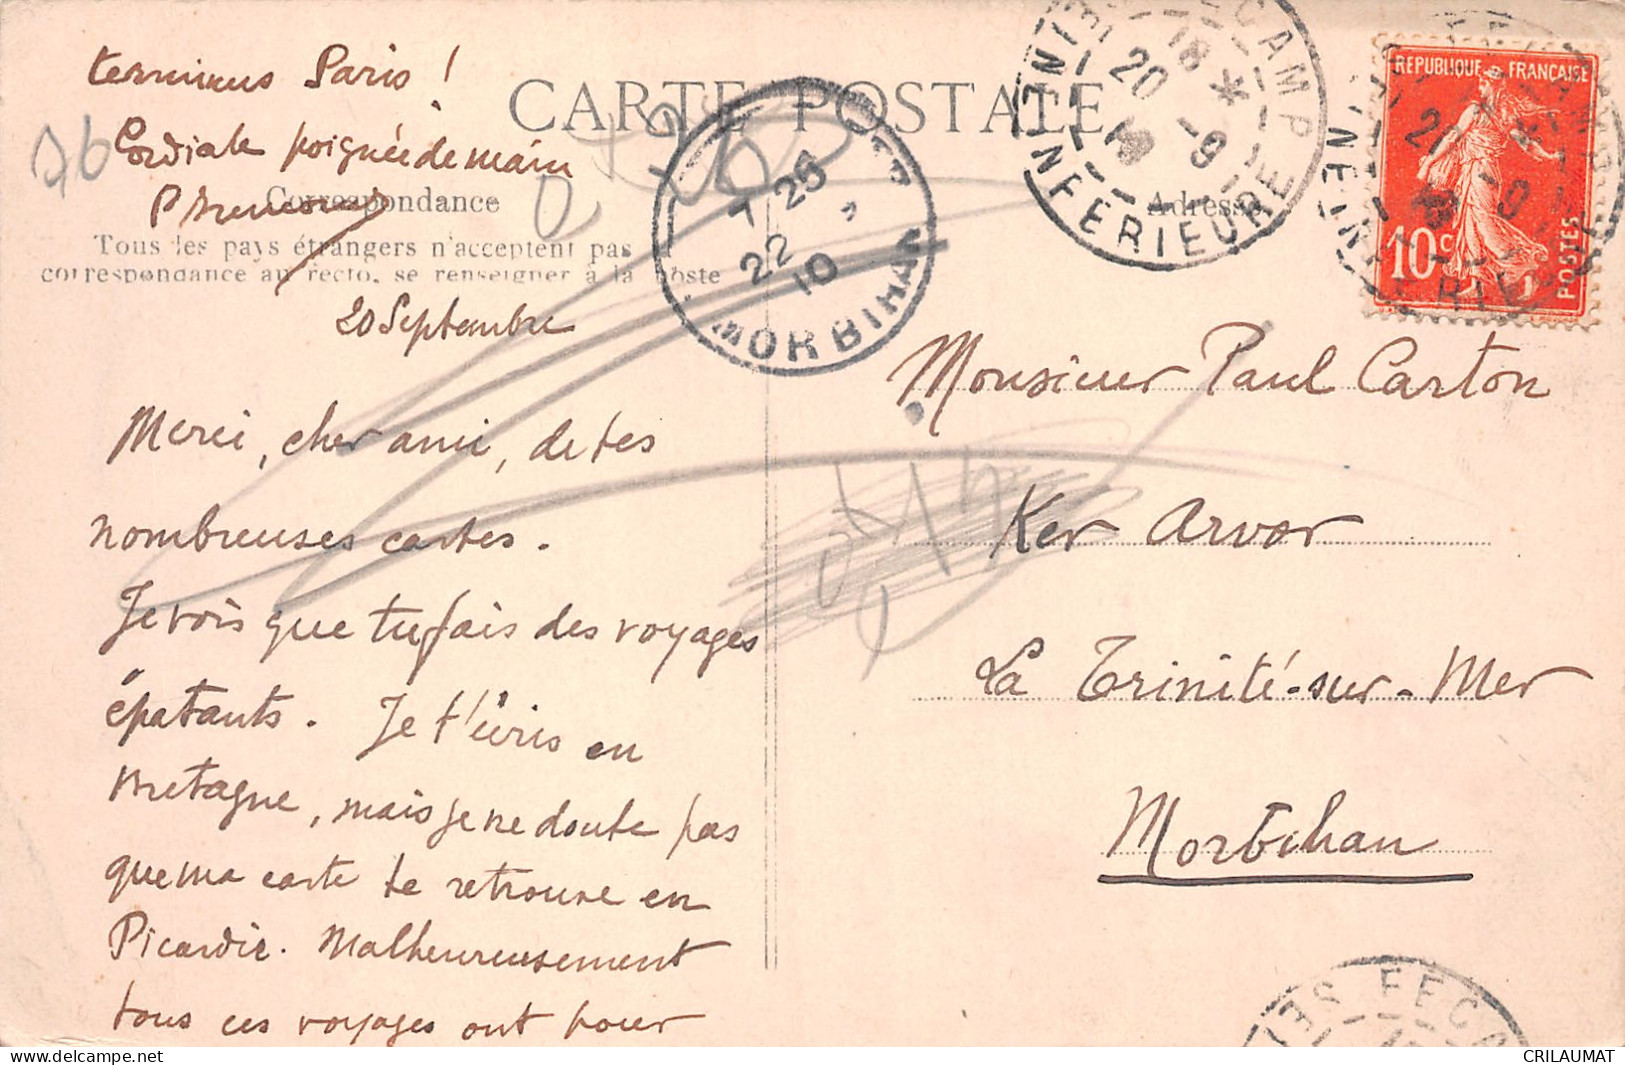 terminus Paris !
Cordiale poignée de main
CARTE POSTALE
Correspondance
Adresse
Tous les pays étrangers n'acceptent pas la
correspondance au recto, se renseigner à la Poste
20 Septembre
Merci, cher ami, de tes
nombreuses cartes.
Je vois que tu fais des voyages
épatants. Je t'écris en
Bretagne, mais je ne doute pas
que ma carte te retrouve en
Picardie. Malheureusement
tous ces voyages ont pour
Monsieur Paul Carton
Ker Arvor
La Trinité-sur-Mer
Morbihan
REPUBLIQUE FRANÇAISE
10c
POSTES
FECAMP
SEINE INFERIEURE
20 -9
7 25
22 - 9
10
MORBIHAN
76
FECA
SEI
CRILAUMAT